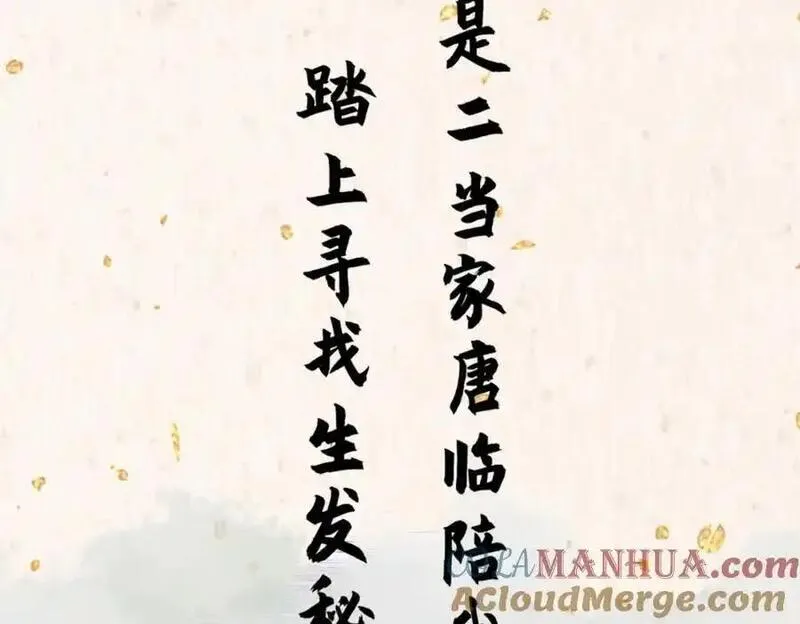 是二当家唐临陪
踏上寻找生发秘
COLAMANHUA.com
ACloudMerge.com